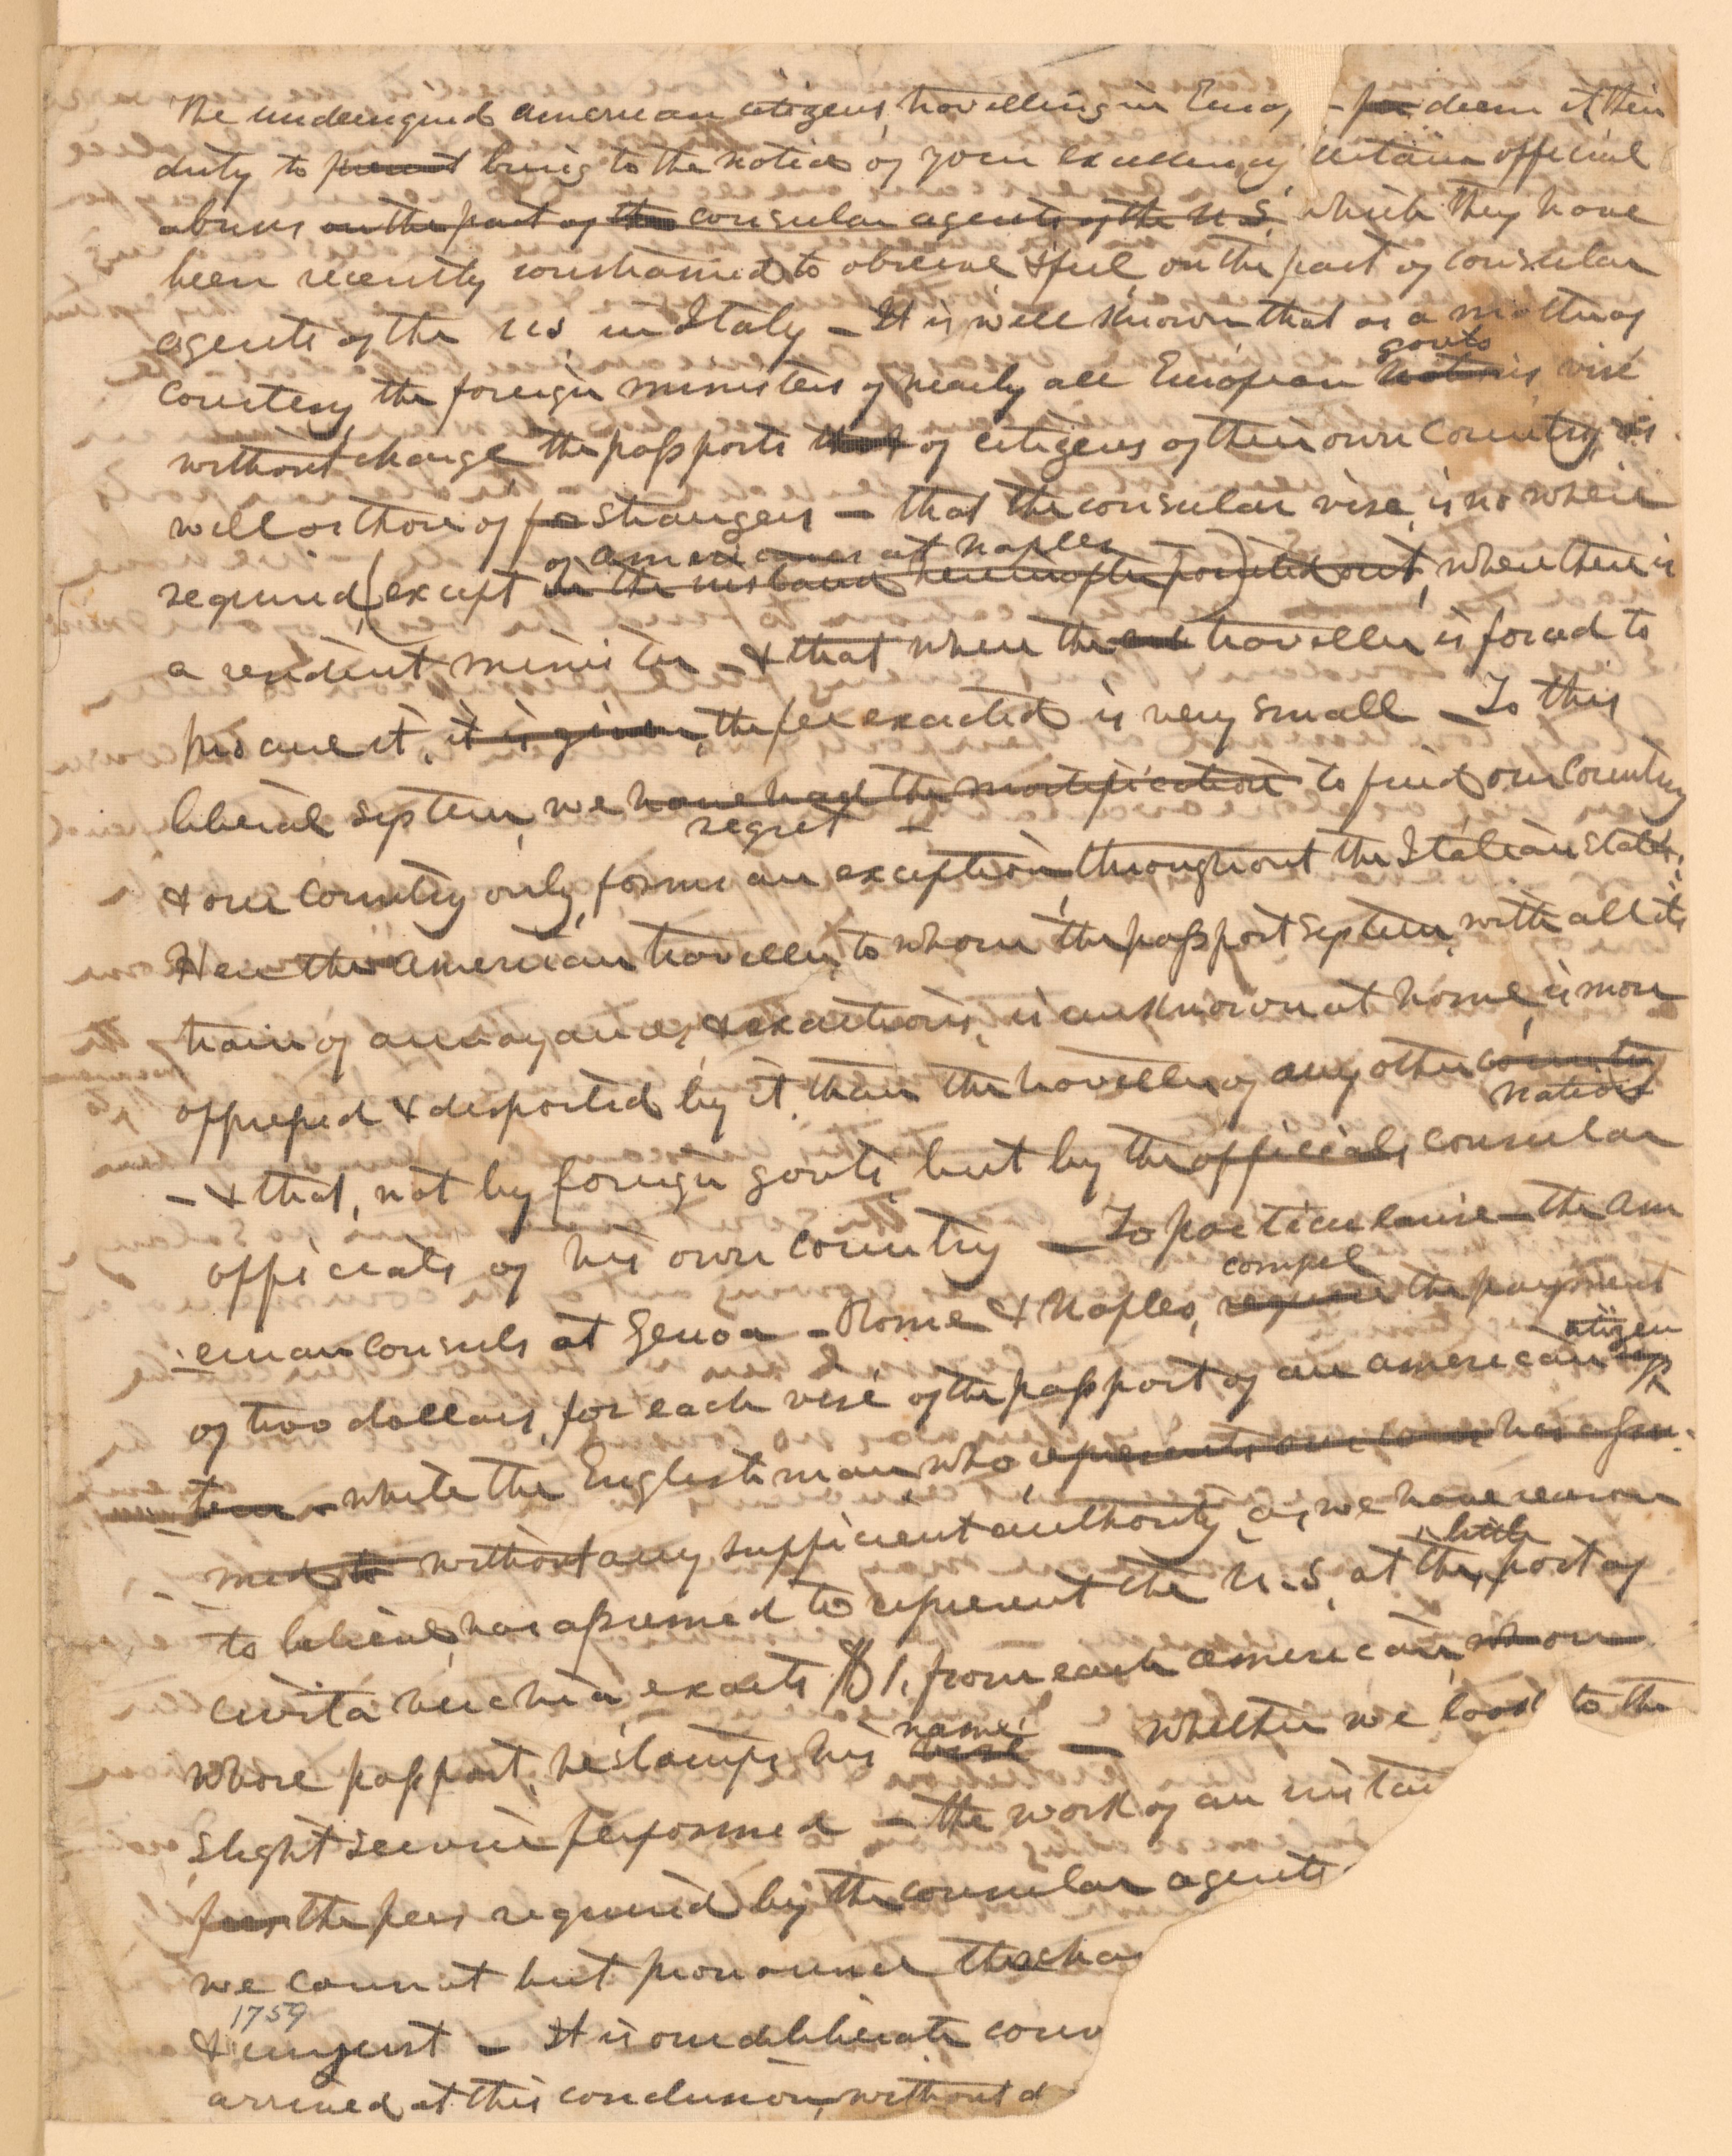 The undersigned American citizens, travelling in Europ - deem it their
duty to present bring to the notice of your excellency certain official
abuses on the part of the consular agents of the U.S. which they have
been recently constrained to observe & feel, on the part of consular
agents of the U.S. in Italy - It is well known that as a matter of
govts
courtesy, the foreign ministers of nearly all European nations, visé
without charge the passports that of citizens of their own country, as
well as those of fo strangers - that the consular vise, is no where
of Americans at Naples
required, (except in the instance hereinafter pointed out), where there is
a resident minister - & that where the traveller is forced to
procure it, it is given, the fee exacted is very small - To this
liberal system, we have had the mortification to find our country
regret -
& our country only, forms an exception, throughout the Italian States.
Here the American traveller, to whom the passport system, with all its
train of annoyances, & exactions, is unknown at home, is more
oppressed & despoiled by it, than the traveller of any other country
nation
- & that, not by foreign govts but by the officials, consular
officials of his own country - To particularise - the Am
erican consuls at Genoa - Rome & Naples, require the payment
compel
citizen
of two dollars, for each visé of the passport of an American
- while the Englishman, who represents our has assu-
med to without any sufficient authority, as, we have reason
little
to believe, has assumed to represent the U.S, at the, port of
Civita Vecchia exacts $1, from each American, whom
name
whose passport, he stamps his visé - Whether we look to the
slight service performed - the work of an instan
fees the fees required by the consular agents
we cannot but pronounce the cha
1759
& unjust - It is our deliberate conv
arrived at this conclusion, without d